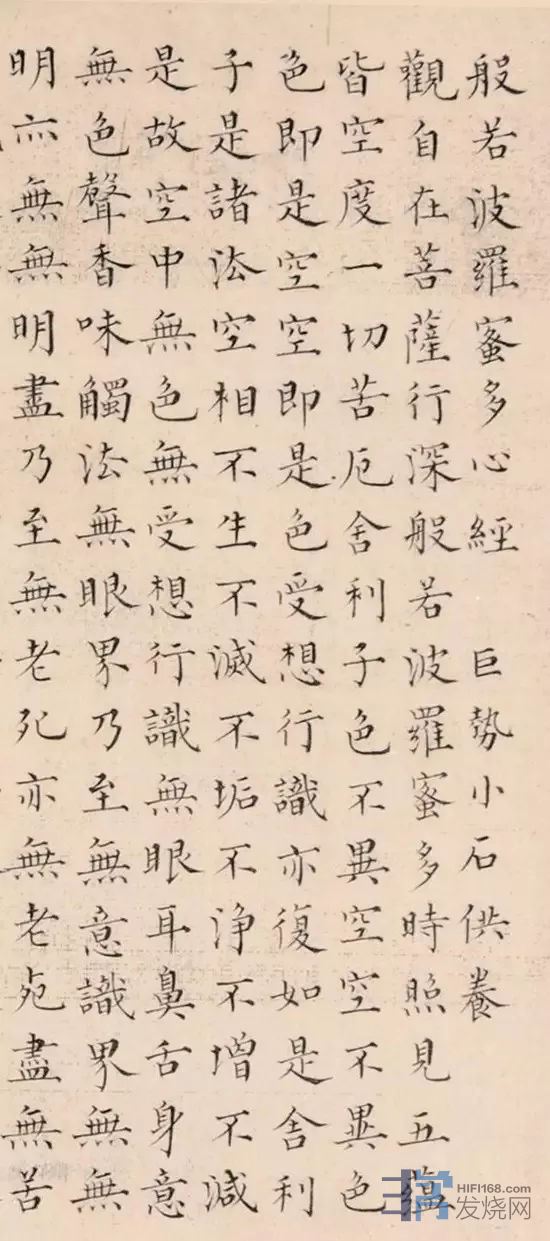 般若波羅蜜多心經 巨勢小石供養
觀自在菩薩行深般若波羅蜜多時照見五蘊
皆空度一切苦厄舍利子色不異空空不異色
色即是空空即是色受想行識亦復如是舍利
子是諸法空相不生不滅不垢不淨不增不減
是故空中無色無受想行識無眼耳鼻舌身意
無色聲香味觸法無眼界乃至無意識界無無
明亦無無明盡乃至無老死亦無老死盡無苦
HIFI168.com
发烧网